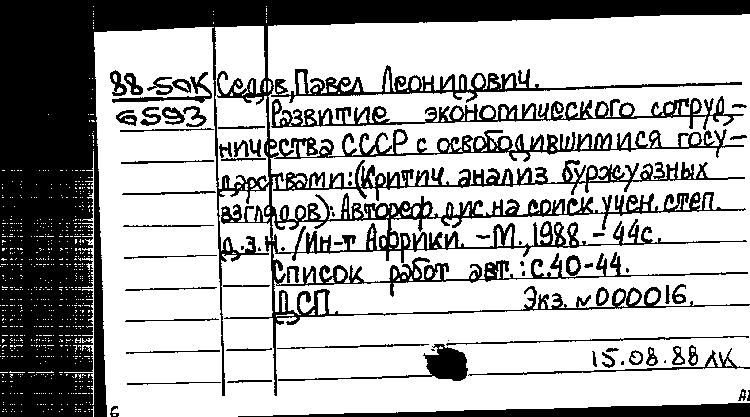 88-50К Седов, Павел Леонидович.
6593 Развитие экономического сотруд-
ничества СССР с освободившимися госу-
дарствами: (Критич. анализ буржуазных
взглядов): Автореф. дис. на соиск. учен. степ.
д.э.н. / Ин-т Африки. – М., 1988. – 44с.
Список работ авт.: с.40-44.
ДСП. Экз. №000016.
15.08.88 ЛК